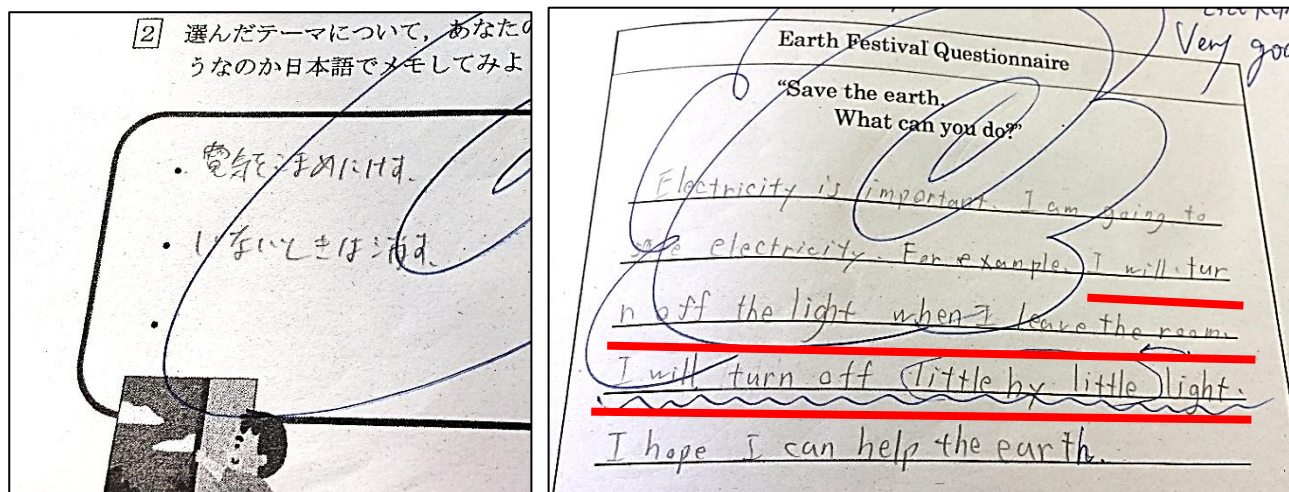 2 選んだテーマについて,あなたの
うなのか日本語でメモしてみよ
・電気をこまめにけす.
・いないときは消す.
・
Very goo
Earth Festival Questionnaire
“Save the earth,
What can you do?”
Electricity is important. I am going to
electricity. For example. I will tur
n off the light when I leave the room.
I will turn off little by little light.
I hope I can help the earth.